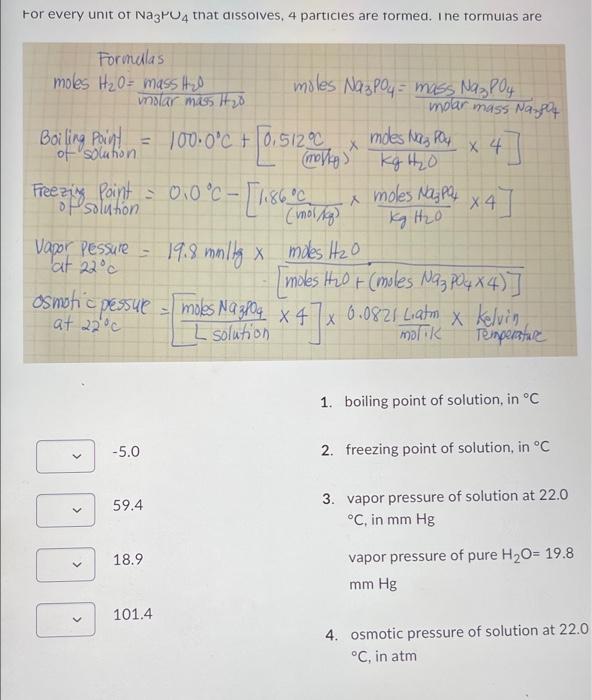 For every unit of Na3PO4 that dissolves, 4 particles are formed. The formulas are
Formulas
moles H2O = mass H2O / molar mass H2O
moles Na3PO4 = mass Na3PO4 / molar mass Na3PO4
Boiling Point of solution = 100.0°C + [0.512 °C / (mol/kg) × moles Na3PO4 / kg H2O × 4]
Freezing Point of solution = 0.0°C - [1.86 °C / (mol/kg) × moles Na3PO4 / kg H2O × 4]
Vapor Pessure at 22°C = 19.8 mmHg × moles H2O / [moles H2O + (moles Na3PO4 × 4)]
Osmotic pessure at 22°C = [moles Na3PO4 / L solution × 4] × 0.0821 L.atm / mol.K × Kelvin Temperature
-5.0
59.4
18.9
101.4
1. boiling point of solution, in °C
2. freezing point of solution, in °C
3. vapor pressure of solution at 22.0
°C, in mm Hg
vapor pressure of pure H2O= 19.8
mm Hg
4. osmotic pressure of solution at 22.0
°C, in atm